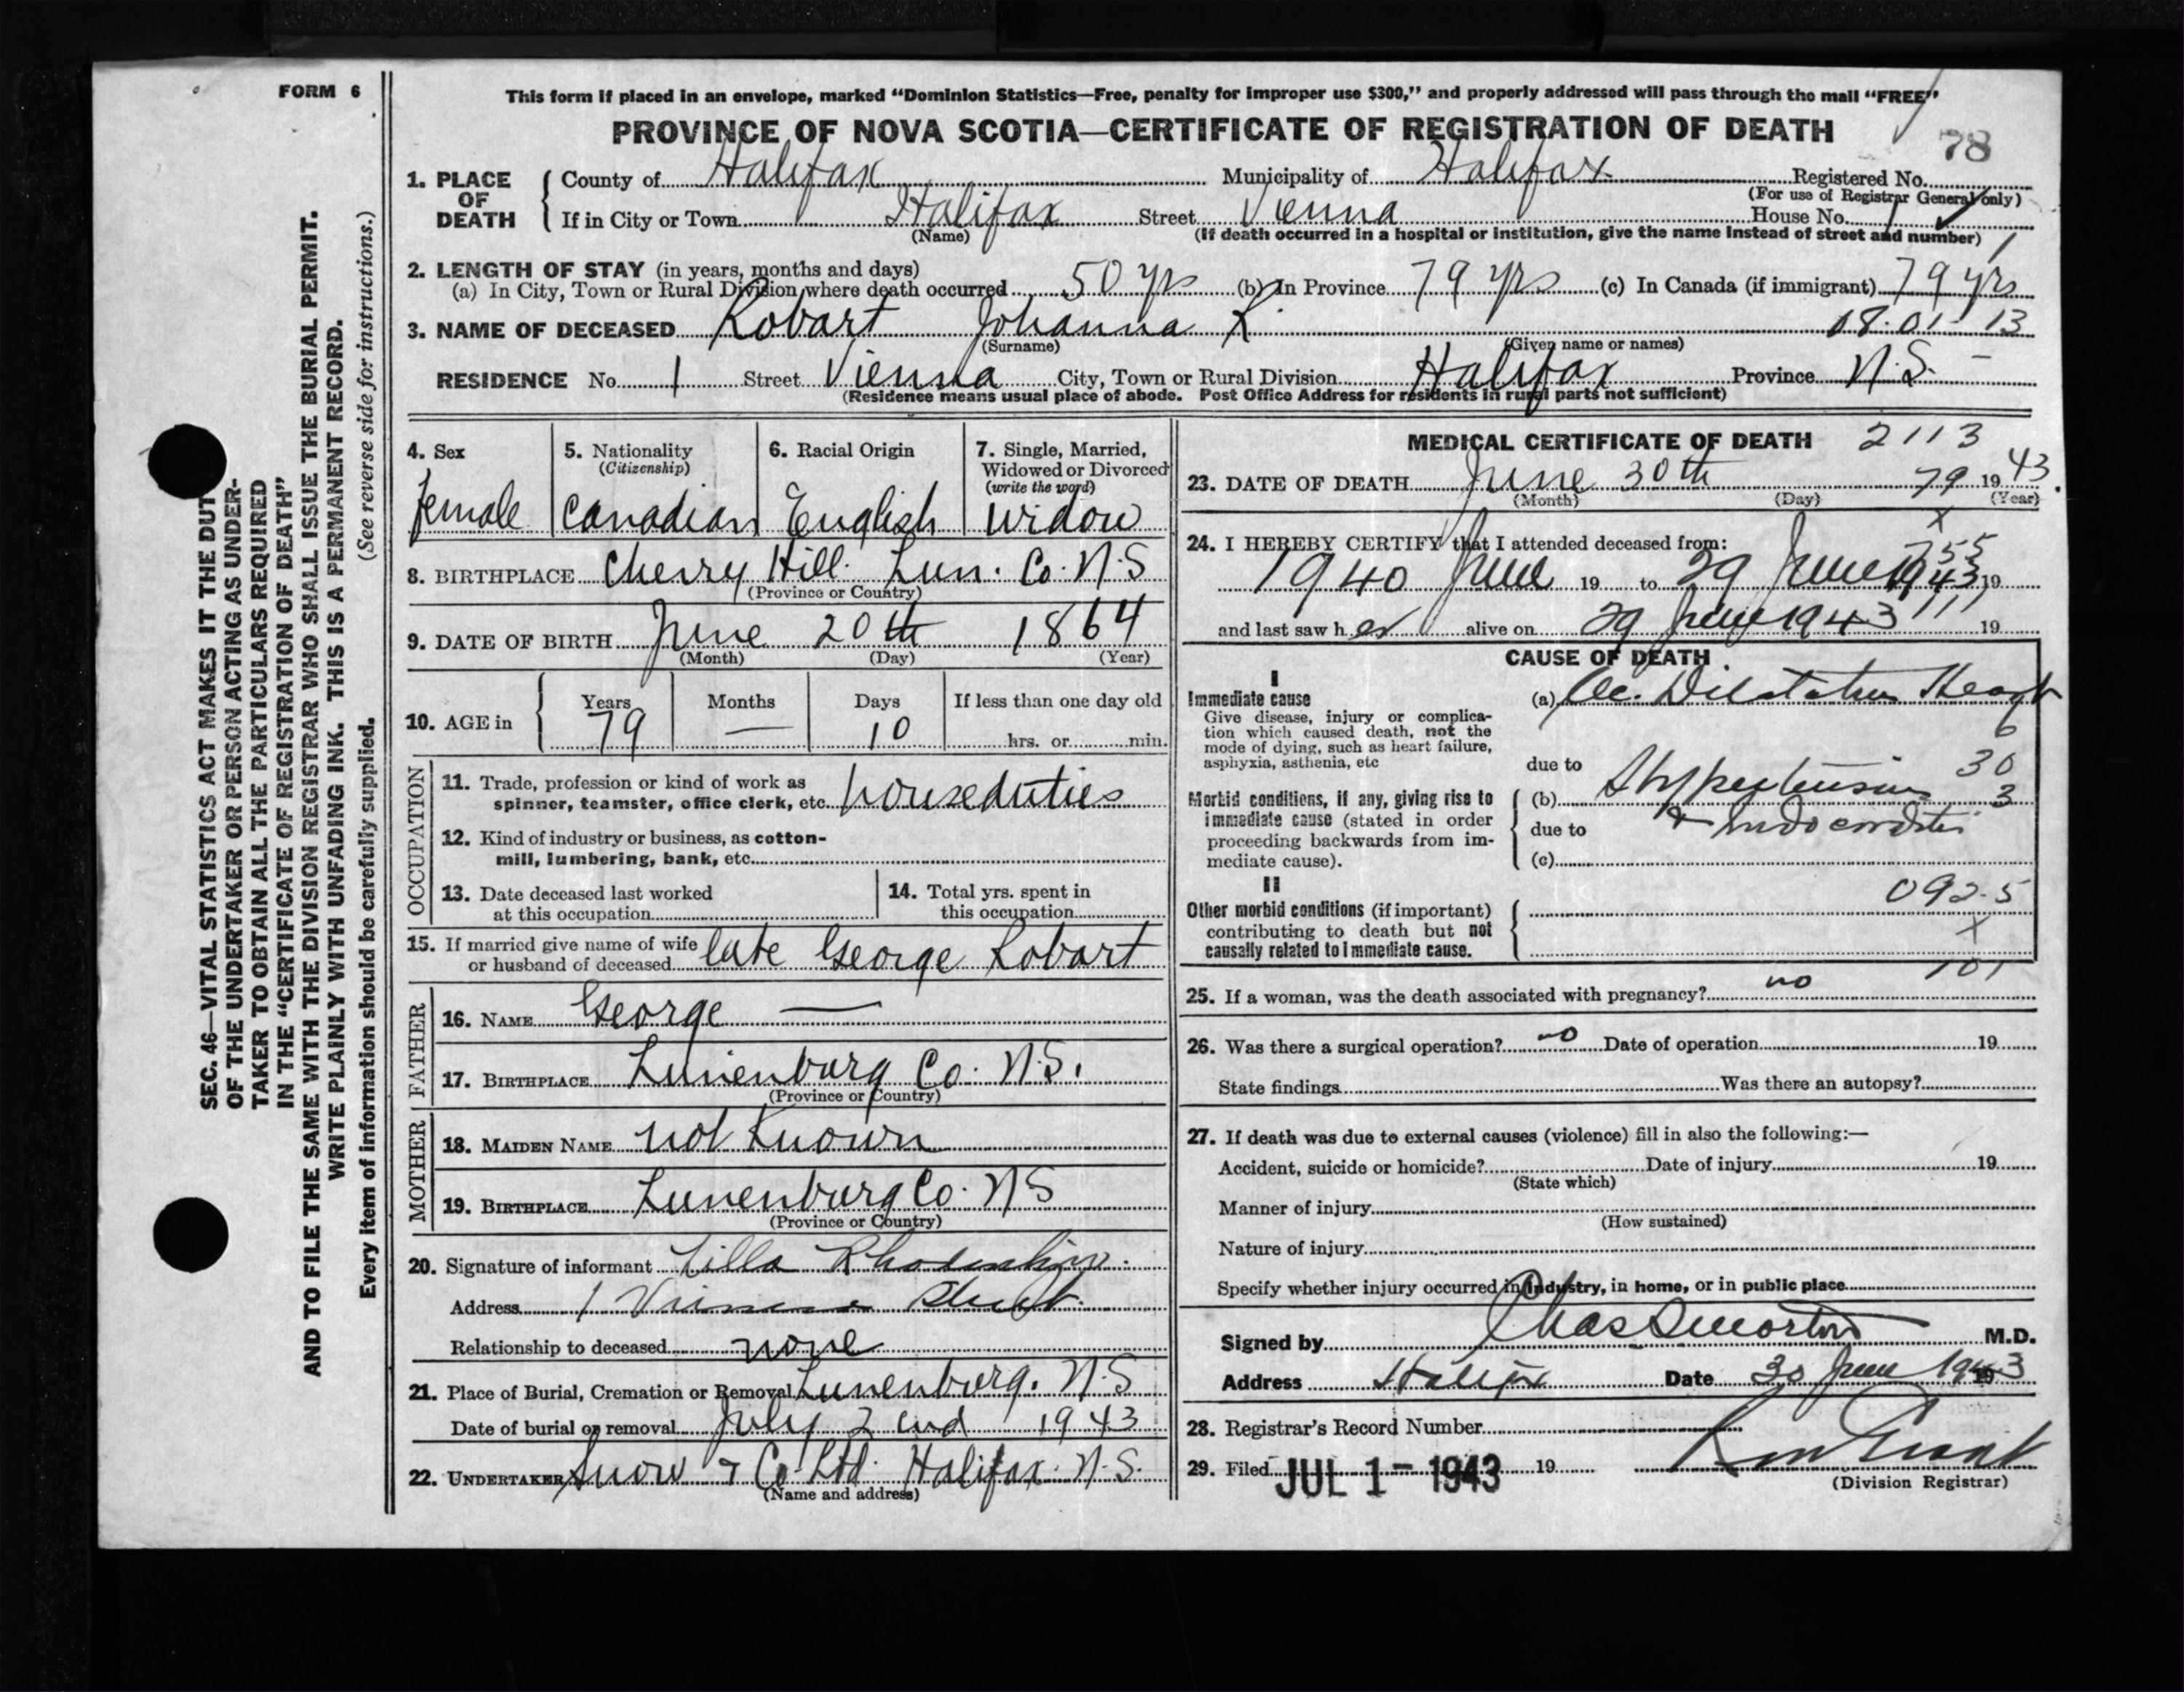 FORM 6
This form if placed in an envelope, marked "Dominion Statistics—Free, penalty for improper use $300," and properly addressed will pass through the mail "FREE"
PROVINCE OF NOVA SCOTIA—CERTIFICATE OF REGISTRATION OF DEATH
78
1. PLACE OF DEATH
County of Halifax Municipality of Halifax Registered No.
(For use of Registrar General only)
If in City or Town Halifax Street Vienna House No. 1
(Name) (If death occurred in a hospital or institution, give the name instead of street and number)
2. LENGTH OF STAY (in years, months and days)
(a) In City, Town or Rural Division where death occurred 50 yrs (b) In Province 79 yrs (c) In Canada (if immigrant) 79 yrs
3. NAME OF DECEASED Robart Johanna R. 18.01-13
(Surname) (Given name or names)
RESIDENCE No. 1 Street Vienna City, Town or Rural Division Halifax Province N.S.
(Residence means usual place of abode. Post Office Address for residents in rural parts not sufficient)
4. Sex
female
5. Nationality
(Citizenship)
Canadian
6. Racial Origin
English
7. Single, Married,
Widowed or Divorced
(write the word)
Widow
8. BIRTHPLACE Cherry Hill. Lun. Co. N.S
(Province or Country)
9. DATE OF BIRTH June 20th 1864
(Month) (Day) (Year)
10. AGE in
Years Months Days If less than one day old
79 — 10 hrs. or min.
OCCUPATION
11. Trade, profession or kind of work as
spinner, teamster, office clerk, etc. houseduties
12. Kind of industry or business, as cotton-
mill, lumbering, bank, etc.
13. Date deceased last worked
at this occupation
14. Total yrs. spent in
this occupation
15. If married give name of wife
or husband of deceased late George Robart
FATHER
16. NAME George —
17. BIRTHPLACE Lunenburg Co. N.S.
(Province or Country)
MOTHER
18. MAIDEN NAME not Known
19. BIRTHPLACE Lunenburg Co. N S
(Province or Country)
20. Signature of informant Lilla
Address 1 Vienna Street.
Relationship to deceased none
21. Place of Burial, Cremation or Removal Lunenburg. N.S
Date of burial or removal July 2nd 1943
22. UNDERTAKER Snow & Co. Ltd. Halifax. N.S.
(Name and address)
MEDICAL CERTIFICATE OF DEATH 2113
23. DATE OF DEATH June 30th 79 1943.
(Month) (Day) (Year)
24. I HEREBY CERTIFY that I attended deceased from:
1940 June 19 to 29 June 1943 19
and last saw her alive on 29 June 1943 19
CAUSE OF DEATH
I
Immediate cause
Give disease, injury or complica-
tion which caused death, not the
mode of dying, such as heart failure,
asphyxia, asthenia, etc
(a) Ac. Dilatation Heart
6
due to
30
Morbid conditions, if any, giving rise to
immediate cause (stated in order
proceeding backwards from im-
mediate cause).
(b) Hypertension 3
due to & Endocarditis
(c)
II
Other morbid conditions (if important)
contributing to death but not
causally related to immediate cause.
092.5
X
101
25. If a woman, was the death associated with pregnancy? no
26. Was there a surgical operation? no Date of operation 19
State findings Was there an autopsy?
27. If death was due to external causes (violence) fill in also the following:—
Accident, suicide or homicide? Date of injury 19
(State which)
Manner of injury
(How sustained)
Nature of injury
Specify whether injury occurred in industry, in home, or in public place
Signed by Chas S Morton M.D.
Address Halifax Date 30 June 1943
28. Registrar's Record Number
29. Filed JUL 1 - 1943 19
(Division Registrar)
SEC. 46—VITAL STATISTICS ACT MAKES IT THE DUTY
OF THE UNDERTAKER OR PERSON ACTING AS UNDER-
TAKER TO OBTAIN ALL THE PARTICULARS REQUIRED
IN THE "CERTIFICATE OF REGISTRATION OF DEATH"
AND TO FILE THE SAME WITH THE DIVISION REGISTRAR WHO SHALL ISSUE THE BURIAL PERMIT.
WRITE PLAINLY WITH UNFADING INK. THIS IS A PERMANENT RECORD.
Every item of information should be carefully supplied. (See reverse side for instructions.)